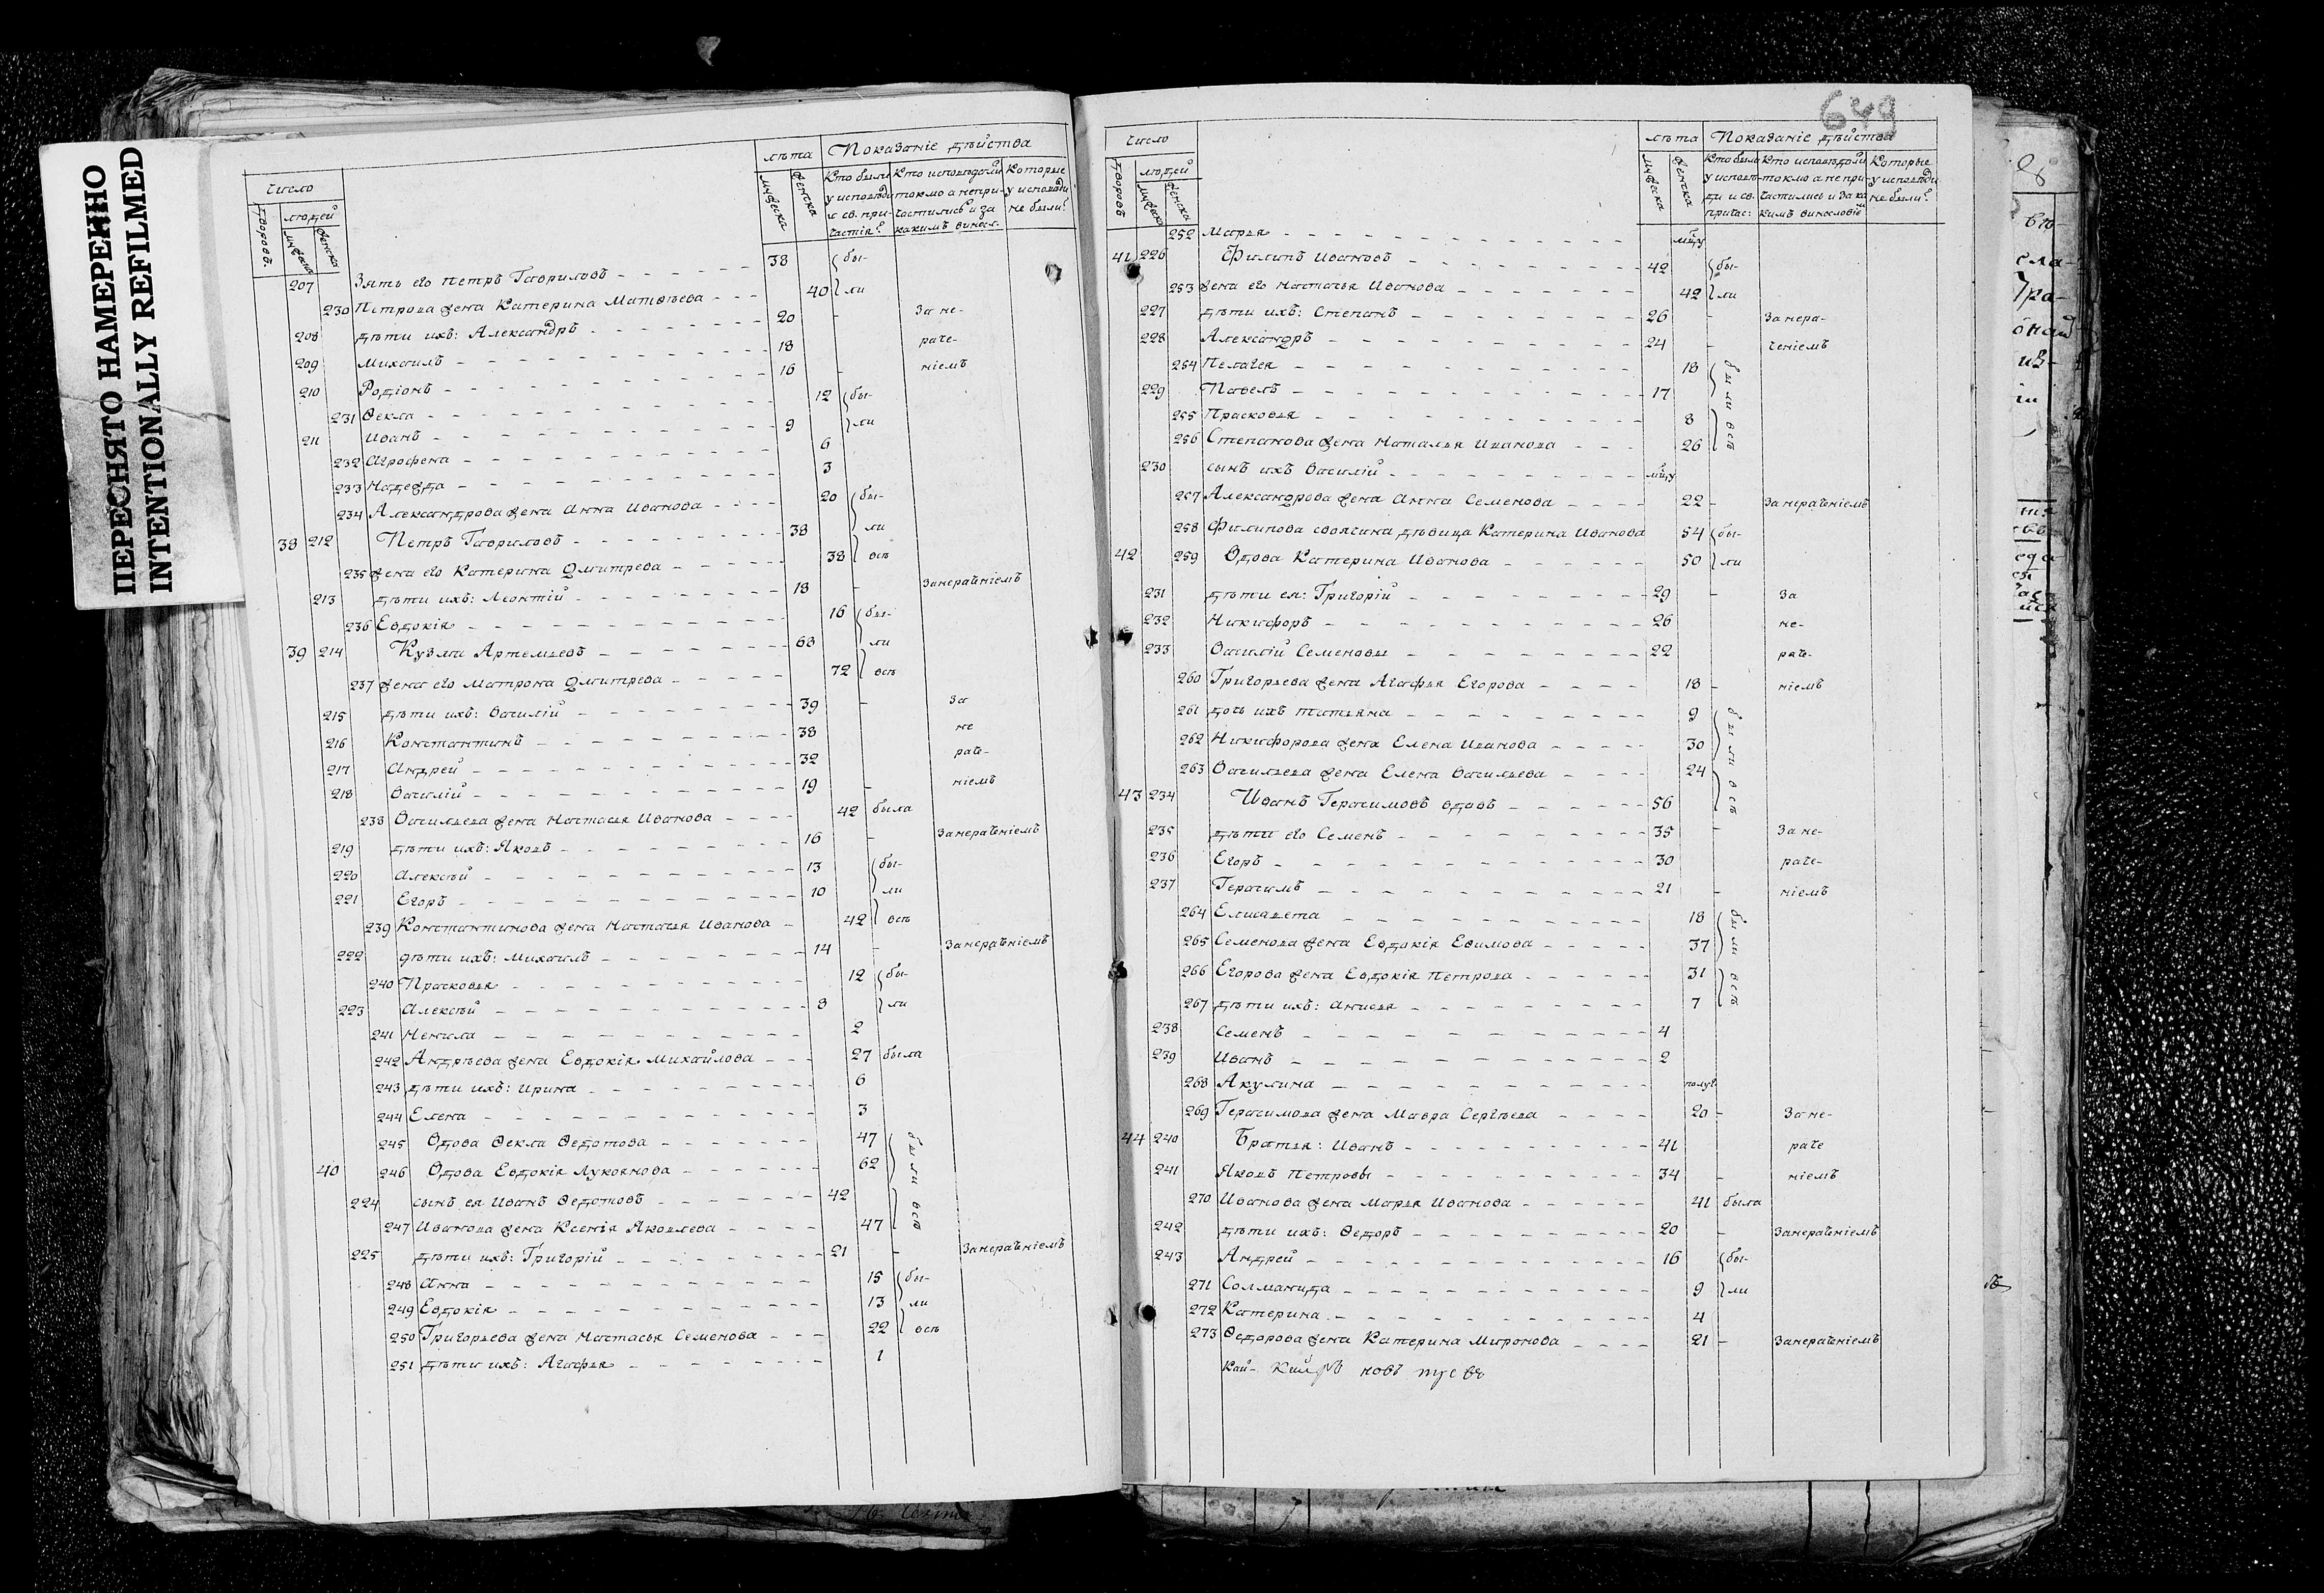 ПЕРЕСНЯТО НАМЕРЕННО
INTENTIONALLY REFILMED
число
лѣта
Показаніе дѣйства
дворовъ.
людей
мужеска
женска
мужеска
женска
Кто были у исповѣди и св. причастія?
Кто исповѣдался токмо а непричастились и за какимъ виносл.
Которые у исповѣди не были?
207 Зять его Петръ Гавриловъ 38 бы-
230 Петрова жена Катерина Матвѣева 40 ли
208 дѣти ихъ: Александръ 20 - За не-
209 Михаилъ 18 раче-
210 Родіонъ 16 - ніемъ
231 Ѳекла 12 бы-
211 Иванъ 9 ли
232 Агрофена 6
233 Надежда 3
234 Александрова жена Анна Иванова 20 бы-
38 212 Петръ Гавриловъ 38 ли
235 жена его Катерина Дмитрева 38 всѣ
213 дѣти ихъ: Леонтій 18 - Занераченіемъ
236 Евдокія 16 бы-
39 214 Кузма Артемьевъ 68 ли
237 жена его Матрона Дмитрева 72 всѣ
215 дѣти ихъ: Василій 39 - За
216 Константинъ 38 не
217 Андрей 32 раче-
218 Василій 19 - ніемъ
238 Васильева жена Настасья Иванова 42 была
219 дѣти ихъ: Яковъ 16 - Занераченіемъ
220 Алексѣй 13 бы-
221 Егоръ 10 ли
239 Константинова жена Настасья Иванова 42 всѣ
222 дѣти ихъ: Михаилъ 14 - Занераченіемъ
240 Прасковья 12 бы-
223 Алексѣй 8 ли
241 Ненила 2
242 Андрѣева жена Евдокія Михайлова 27 была
243 дѣти ихъ: Ирина 6
244 Елена 3
245 Вдова Ѳекла Ѳедотова 47 были всѣ
40 246 Вдова Евдокія Лукоянова 62
224 сынъ ея Иванъ Ѳедотовъ 42
247 Иванова жена Ксенія Яковлева 47
225 дѣти ихъ: Григорій 21 - Занераченіемъ
248 Анна 15 бы-
249 Евдокія 13 ли
250 Григорьева жена Настасья Семенова 22 всѣ
251 дѣти ихъ: Агафья 1
649
число
лѣта
Показаніе дѣйства
дворовъ
людей
мужеска
женска
мужеска
женска
Кто были у исповѣди и св. причас:
Кто исповѣдали токмо а не причастились и за какимъ винословіе
Которые у исповѣди не были?
252 Марья мцу
41 226 Филипъ Ивановъ 42 бы-
253 жена его Настасья Иванова 42 ли
227 дѣти ихъ: Степанъ 26 - Занера-
228 Александръ 24 - ченіемъ
254 Пелагея 18 были всѣ
229 Павелъ 17
255 Прасковья 8
256 Степанова жена Наталья Иванова 26
230 сынъ ихъ Василій мцу
257 Александрова жена Анна Семенова 22 - Занераченіемъ
258 Филипова своячина дѣвица Катерина Иванова 54 бы-
42 259 Вдова Катерина Иванова 50 ли
231 дѣти ея: Григорій 29 - За
232 Никифоръ 26 не-
233 Василій Семеновы 22 раче-
260 Григорьева жена Агафья Егорова 18 - ніемъ
261 дочь ихъ Татьяна 9 были всѣ
262 Никифорова жена Елена Иванова 30
263 Васильева жена Елена Васильева 24
43 234 Иванъ Герасимовъ вдовъ 56
235 дѣти его Семенъ 35 - За не-
236 Егоръ 30 раче-
237 Герасимъ 21 - ніемъ
264 Елисавета 18 были всѣ
265 Семенова жена Евдокія Ефимова 37
266 Егорова жена Евдокія Петрова 31
267 дѣти ихъ: Анисья 7
238 Семенъ 4
239 Иванъ 2
268 Акулина полуг.
269 Герасимова жена Мавра Сергѣева 20 - За не-
44 240 Братья: Иванъ 41 раче
241 Яковъ Петровы 34 - ніемъ
270 Иванова жена Марья Иванова 41 была
242 дѣти ихъ: Ѳедоръ 20 - Занераченіемъ
243 Андрей 16 бы-
271 Солманида 9 ли
272 Катерина 4
273 Ѳедорова жена Катерина Миронова 21 - Занераченіемъ